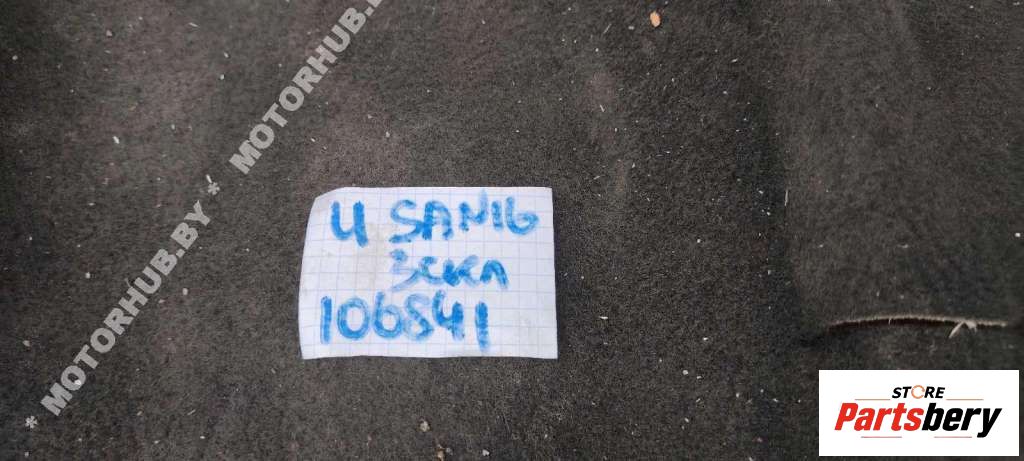 * MOTORHUB.BY * MOTORHUB.BY
4 SANIG
3СКЛ
106541
STORE
Partsbery